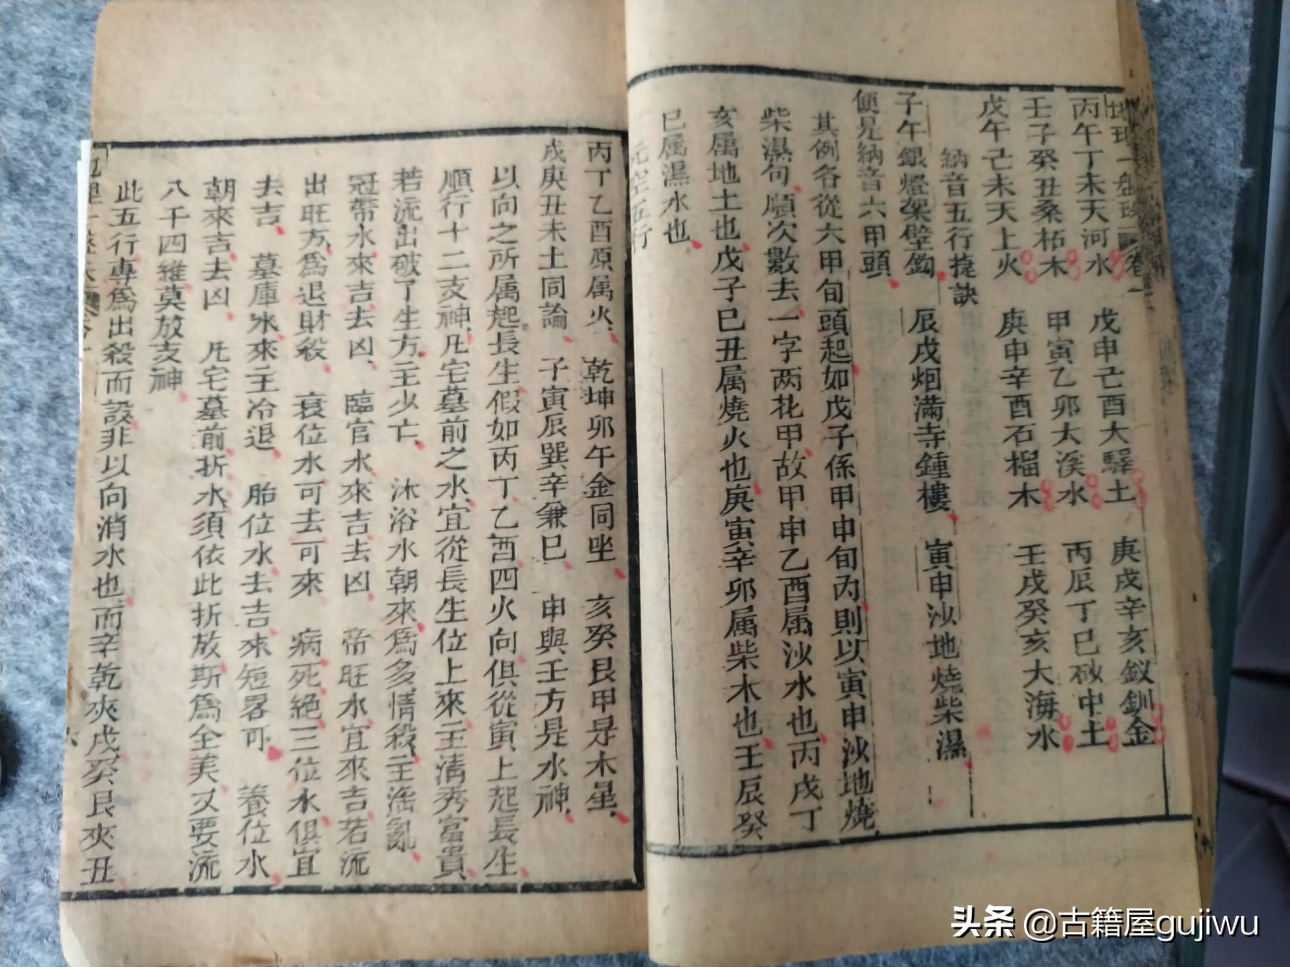 丙午丁未天河水 戊申己酉大驛土 庚戌辛亥釵釧金
壬子癸丑桑柘木 甲寅乙卯大溪水 丙辰丁巳砂中土
戊午己未天上火 庚申辛酉石榴木 壬戌癸亥大海水
納音五行捷訣
子午銀燈架壁鈎 辰戌烟满寺鍾樓 寅申沙地燒柴濕
便是納音六甲頭
其例各從六甲旬頭起如戊子係甲申旬內則以寅申沙地燒
柴濕句順次數去一字两花甲故甲申乙酉属沙水也丙戌丁
亥属地土也戊子巳丑属燒火也庚寅辛卯属柴木也壬辰癸
巳属濕水也
元空五行
丙丁乙酉原属火 乾坤卯午金同坐 亥癸艮甲是木星
戌庚丑未土同論 子寅辰巽辛兼巳 申與壬方是水神
以向之所属起長生假如丙丁乙酉四火向俱從寅上起長生
順行十二支神凡宅墓前之水宜從長生位上來主清秀富貴
若流出破了生方主少亡 沐浴水朝來為多情殺主滛亂
冠帶水來吉去凶 臨官水來吉去凶 帝旺水宜來吉若流
出旺方為退財殺 衰位水可去可來 病死絕三位水俱宜
去吉 墓庫水來主冷退 胎位水去吉來短畧可 養位水
朝來吉去凶 凡宅墓前折水須依此折放斯為全美又要流
八干四維莫放支神
此五行專為出殺而設非以向消水也而辛乾夾戌癸艮夾丑
头条 @古籍屋gujiwu